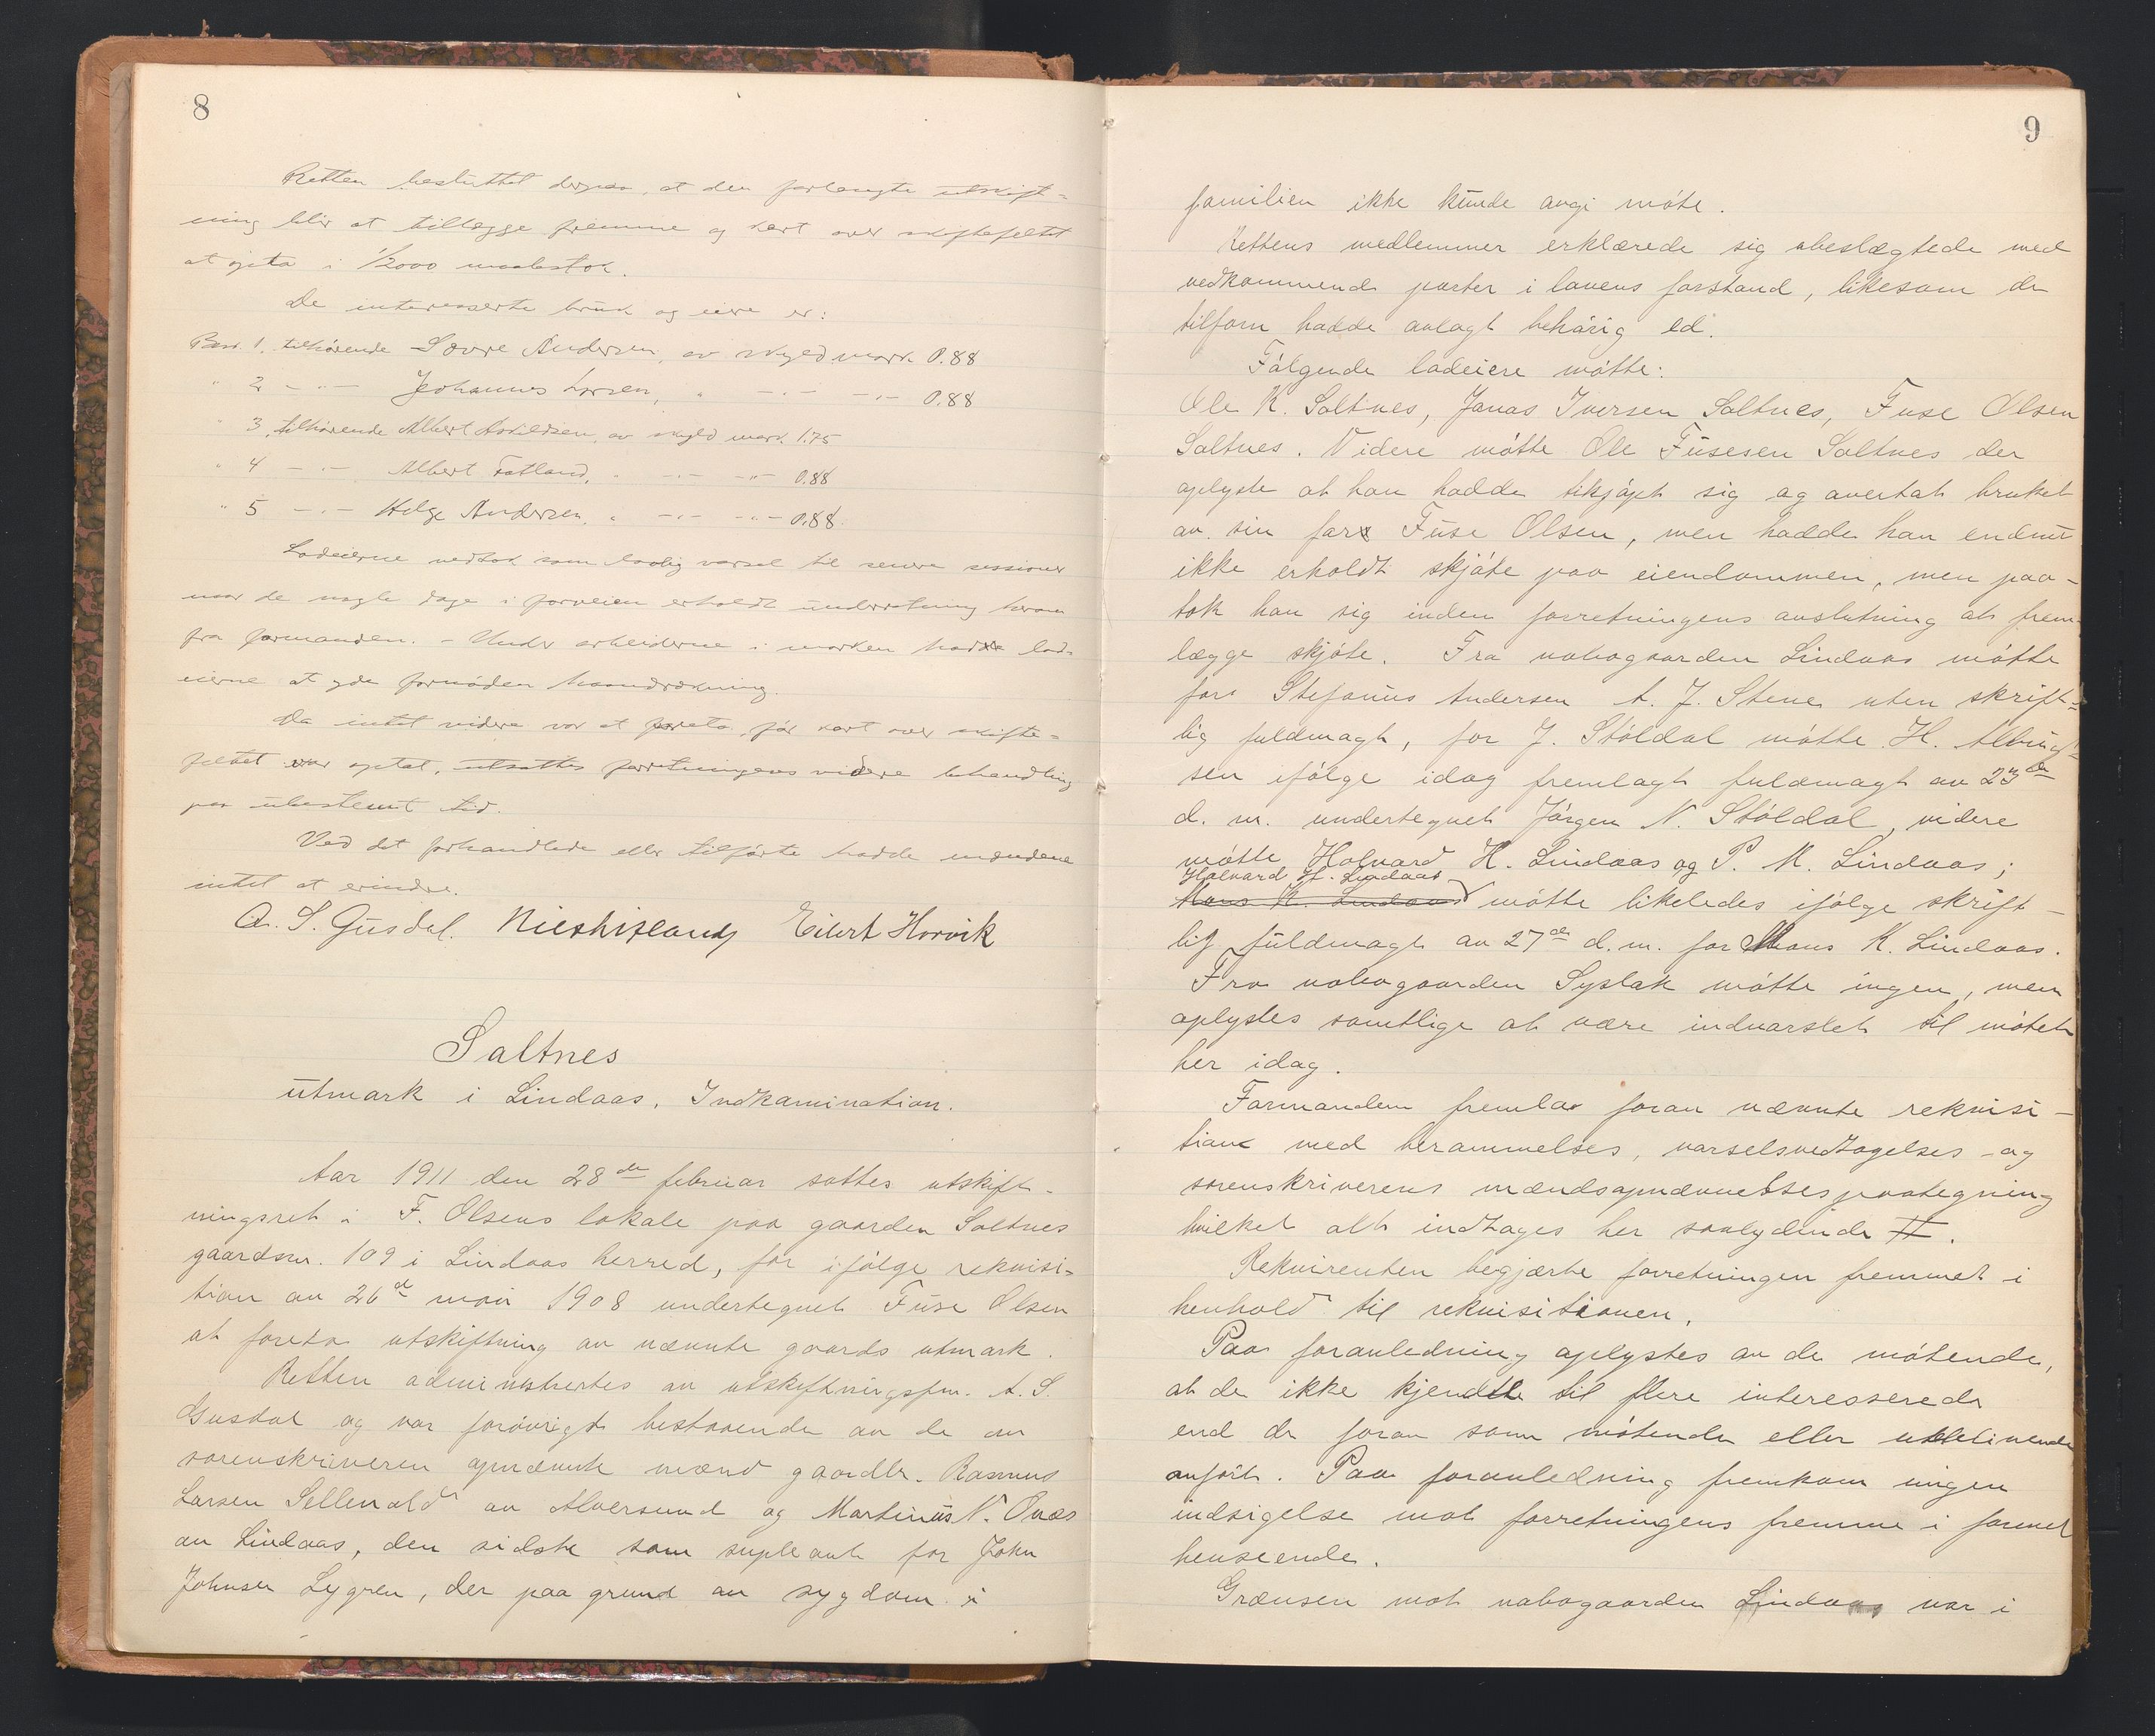 8
Retten besluttet derpaa, at den forlangte utskift-
ning blir at tillægge fremme og kart over skiftefeltet
at opta i 1/2000 maalestok.
De interesserte bruk og eiere er:
Bnr. 1, tilhörende Sjovre Andersen, av skyld mark 0.88
" 2 -"- Johannes Larsen, " -"- -"- 0.88
" 3, tilhörende Albert Askildsen, av skyld mark 1.75
" 4 -"- Albert Fatland, " -"- -"- 0.88
" 5 -"- Helge Andersen, " -"- -"- 0.88.
Lodeierne vedtok som lovlig varsel til senere sessioner
naar de nogle dage i forveien erholdt underretning herom
fra formanden. - Under arbeiderne i marken hadde lod-
eierne at yde fornöden haandrækning.
Da intet videre var at foreta, för kart over skifte-
feltet var optat, utsattes forretningens videre behandling
paa ubestemt tid.
Ved det forhandlede eller tilförte hadde mændene
intet at erindre.
A. S. Gusdal. Eilert Horvik
Saltnes
utmark i Lindaas. Indkamination.
Aar 1911 den 28de februar sattes utskift-
ningsret i F. Olsens lokale paa gaarden Saltnes
gaardsnr. 109 i Lindaas herred, for ifölge rekvisi-
tion av 26de mai 1908 undertegnet Fuse Olsen
at foreta utskiftning av nævnte gaards utmark.
Retten administrertes av utskiftningsfm. A. S.
Gusdal og var forövrigt bestaaende av de av
sorenskriveren opnævnte mænd gaardbr. Rasmus
Larsen Sellevold av Alversund og Martinus N. Onæs
av Lindaas, den sidste som supleant for John
Johnsen Lygren, der paa grund av sygdom i
9
familien ikke kunde avgi möte.
Rettens medlemmer erklærede sig ubeslægtede med
vedkommende parter i lovens forstand, likesom de
tilforn hadde avlagt behörig ed.
Fölgende lodeiere mötte:
Ole K. Saltnes, Jonas Iversen Saltnes, Fuse Olsen
Saltnes. Videre mötte Ole Fusesen Saltnes der
oplyste at han hadde tilkjöpt sig og overtat bruket
av sin far Fuse Olsen, men hadde han endnu
ikke erholdt skjöte paa eiendommen, men paa-
tok han sig inden forretningens avslutning at frem-
lægge skjöte. Fra nabogaarden Lindaas mötte
for Stefanus Andersen A. J. Stene uten skrift-
lig fuldmagt, for J. Stöldal mötte H. Albrigt-
sen ifölge idag fremlagt fuldmagt av 23de
d. m. undertegnet Jörgen N. Stöldal, videre
mötte Halvard H. Lindaas og P. M. Lindaas;
Halvard H. Lindaas
Mons K. Lindaas mötte likeledes ifölge skrift-
lig fuldmagt av 27de d. m. for Mons K. Lindaas.
Fra nabogaarden Syslak mötte ingen, men
oplystes samtlige at være indvarslet til mötet
her idag.
Formanden fremla foran nævnte rekvisi-
tion med berammelses, varselsvedtagelses - og
sorenskriverens mændsopnævnelsespaategning
hvilket alt indtages her saalydende #.
Rekvirenten begjærte forretningen fremmet i
henhold til rekvisitionen.
Paa foranledning oplystes av de mötende,
at de ikke kjendte til flere interesserede
end de foran som mötende eller uteblivende
anfört. Paa foranledning fremkom ingen
indsigelse mot forretningens fremme i formel
henseende.
Grænsen mot nabogaarden Lindaas var i